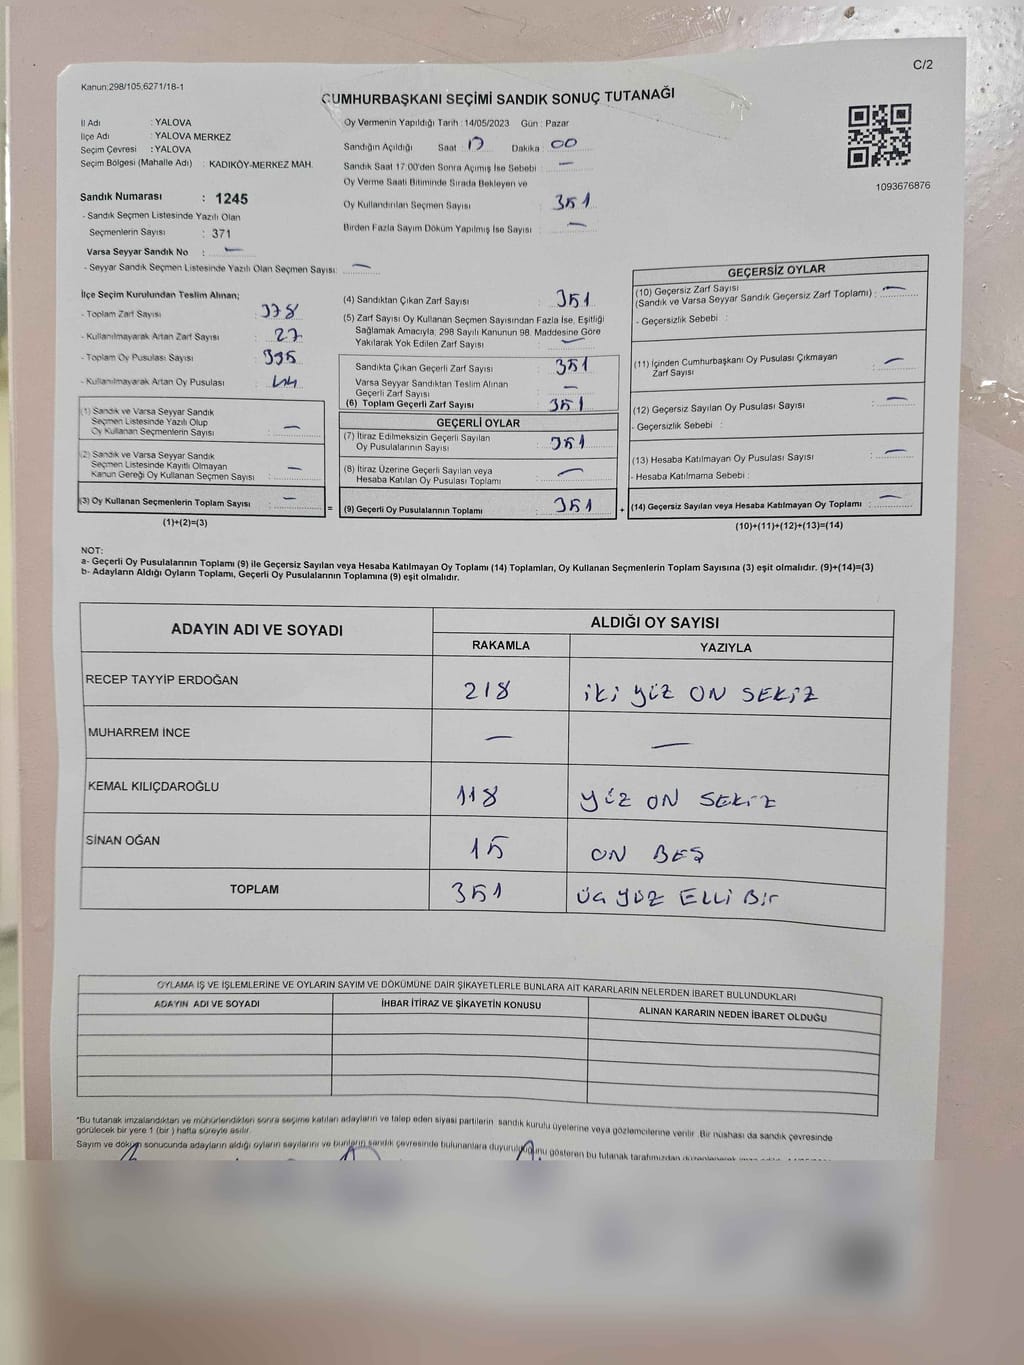 C/2
Kanun:298/105,6271/18-1
CUMHURBAŞKANI SEÇİMİ SANDIK SONUÇ TUTANAĞI
İl Adı : YALOVA
İlçe Adı : YALOVA MERKEZ
Seçim Çevresi : YALOVA
Seçim Bölgesi (Mahalle Adı) : KADIKÖY-MERKEZ MAH.
Sandık Numarası : 1245
- Sandık Seçmen Listesinde Yazılı Olan
Seçmenlerin Sayısı : 371
Varsa Seyyar Sandık No : —
- Seyyar Sandık Seçmen Listesinde Yazılı Olan Seçmen Sayısı: —
Oy Vermenin Yapıldığı Tarih : 14/05/2023 Gün : Pazar
Sandığın Açıldığı Saat : Dakika : 00
Sandık Saat 17:00'den Sonra Açımış İse Sebebi : —
Oy Verme Saati Bitiminde Sırada Bekleyen ve
Oy Kullandırılan Seçmen Sayısı : 351
Birden Fazla Sayım Döküm Yapılmış İse Sayısı : —
1093676876
İlçe Seçim Kurulundan Teslim Alınan;
- Toplam Zarf Sayısı : 378
- Kullanılmayarak Artan Zarf Sayısı : 27
- Toplam Oy Pusulası Sayısı : 395
- Kullanılmayarak Artan Oy Pusulası : 44
(1) Sandık ve Varsa Seyyar Sandık
Seçmen Listesinde Yazılı Olup
Oy Kullanan Seçmenlerin Sayısı : —
(2) Sandık ve Varsa Seyyar Sandık
Seçmen Listesinde Kayıtlı Olmayan
Kanun Gereği Oy Kullanan Seçmen Sayısı : —
(3) Oy Kullanan Seçmenlerin Toplam Sayısı : —
(1)+(2)=(3)
=
(4) Sandıktan Çıkan Zarf Sayısı : 351
(5) Zarf Sayısı Oy Kullanan Seçmen Sayısından Fazla İse, Eşitliği
Sağlamak Amacıyla, 298 Sayılı Kanunun 98. Maddesine Göre
Yakılarak Yok Edilen Zarf Sayısı : —
Sandıkta Çıkan Geçerli Zarf Sayısı : 351
Varsa Seyyar Sandıktan Teslim Alınan
Geçerli Zarf Sayısı : —
(6) Toplam Geçerli Zarf Sayısı : 351
GEÇERLİ OYLAR
(7) İtiraz Edilmeksizin Geçerli Sayılan
Oy Pusulalarının Sayısı : 351
(8) İtiraz Üzerine Geçerli Sayılan veya
Hesaba Katılan Oy Pusulası Toplamı : —
(9) Geçerli Oy Pusulalarının Toplamı : 351
+
GEÇERSİZ OYLAR
(10) Geçersiz Zarf Sayısı
(Sandık ve Varsa Seyyar Sandık Geçersiz Zarf Toplamı) : —
- Geçersizlik Sebebi :
(11) İçinden Cumhurbaşkanı Oy Pusulası Çıkmayan
Zarf Sayısı : —
(12) Geçersiz Sayılan Oy Pusulası Sayısı : —
- Geçersizlik Sebebi :
(13) Hesaba Katılmayan Oy Pusulası Sayısı : —
- Hesaba Katılmama Sebebi :
(14) Geçersiz Sayılan veya Hesaba Katılmayan Oy Toplamı : —
(10)+(11)+(12)+(13)=(14)
NOT:
a- Geçerli Oy Pusulalarının Toplamı (9) ile Geçersiz Sayılan veya Hesaba Katılmayan Oy Toplamı (14) Toplamları, Oy Kullanan Seçmenlerin Toplam Sayısına (3) eşit olmalıdır. (9)+(14)=(3)
b- Adayların Aldığı Oyların Toplamı, Geçerli Oy Pusulalarının Toplamına (9) eşit olmalıdır.
ADAYIN ADI VE SOYADI ALDIĞI OY SAYISI
RAKAMLA YAZIYLA
RECEP TAYYİP ERDOĞAN 218 iki yüz ON SEKiZ
MUHARREM İNCE — —
KEMAL KILIÇDAROĞLU 118 yüz ON SEKiZ
SİNAN OĞAN 15 ON BEŞ
TOPLAM 351 üç yüz ELLi Bir
OYLAMA İŞ VE İŞLEMLERİNE VE OYLARIN SAYIM VE DÖKÜMÜNE DAİR ŞİKAYETLERLE BUNLARA AİT KARARLARIN NELERDEN İBARET BULUNDUKLARI
ADAYIN ADI VE SOYADI İHBAR İTİRAZ VE ŞİKAYETİN KONUSU ALINAN KARARIN NEDEN İBARET OLDUĞU
*Bu tutanak imzalandıktan ve mühürlendikten sonra seçime katılan adayların ve talep eden siyasi partilerin sandık kurulu üyelerine veya gözlemcilerine verilir. Bir nüshası da sandık çevresinde
görülecek bir yere 1 (bir ) hafta süreyle asılır.
Sayım ve döküm sonucunda adayların aldığı oyların sayılarını ve bunların sandık çevresinde bulunanlara duyurulduğunu gösteren bu tutanak tarafımızdan düzenlenerek